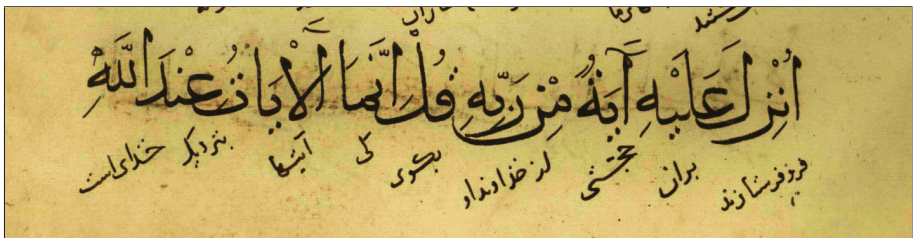 أُنْزِلَ عَلَيْهِ آيَةٌ مِنْ رَبِّهِ قُلْ اِنَّمَا الْآيَاتُ عِنْدَ اللَّهِ
فرو فرستازند بران حجتی از خذاوند او بکوی کی آیتها بنزدیک خذای است